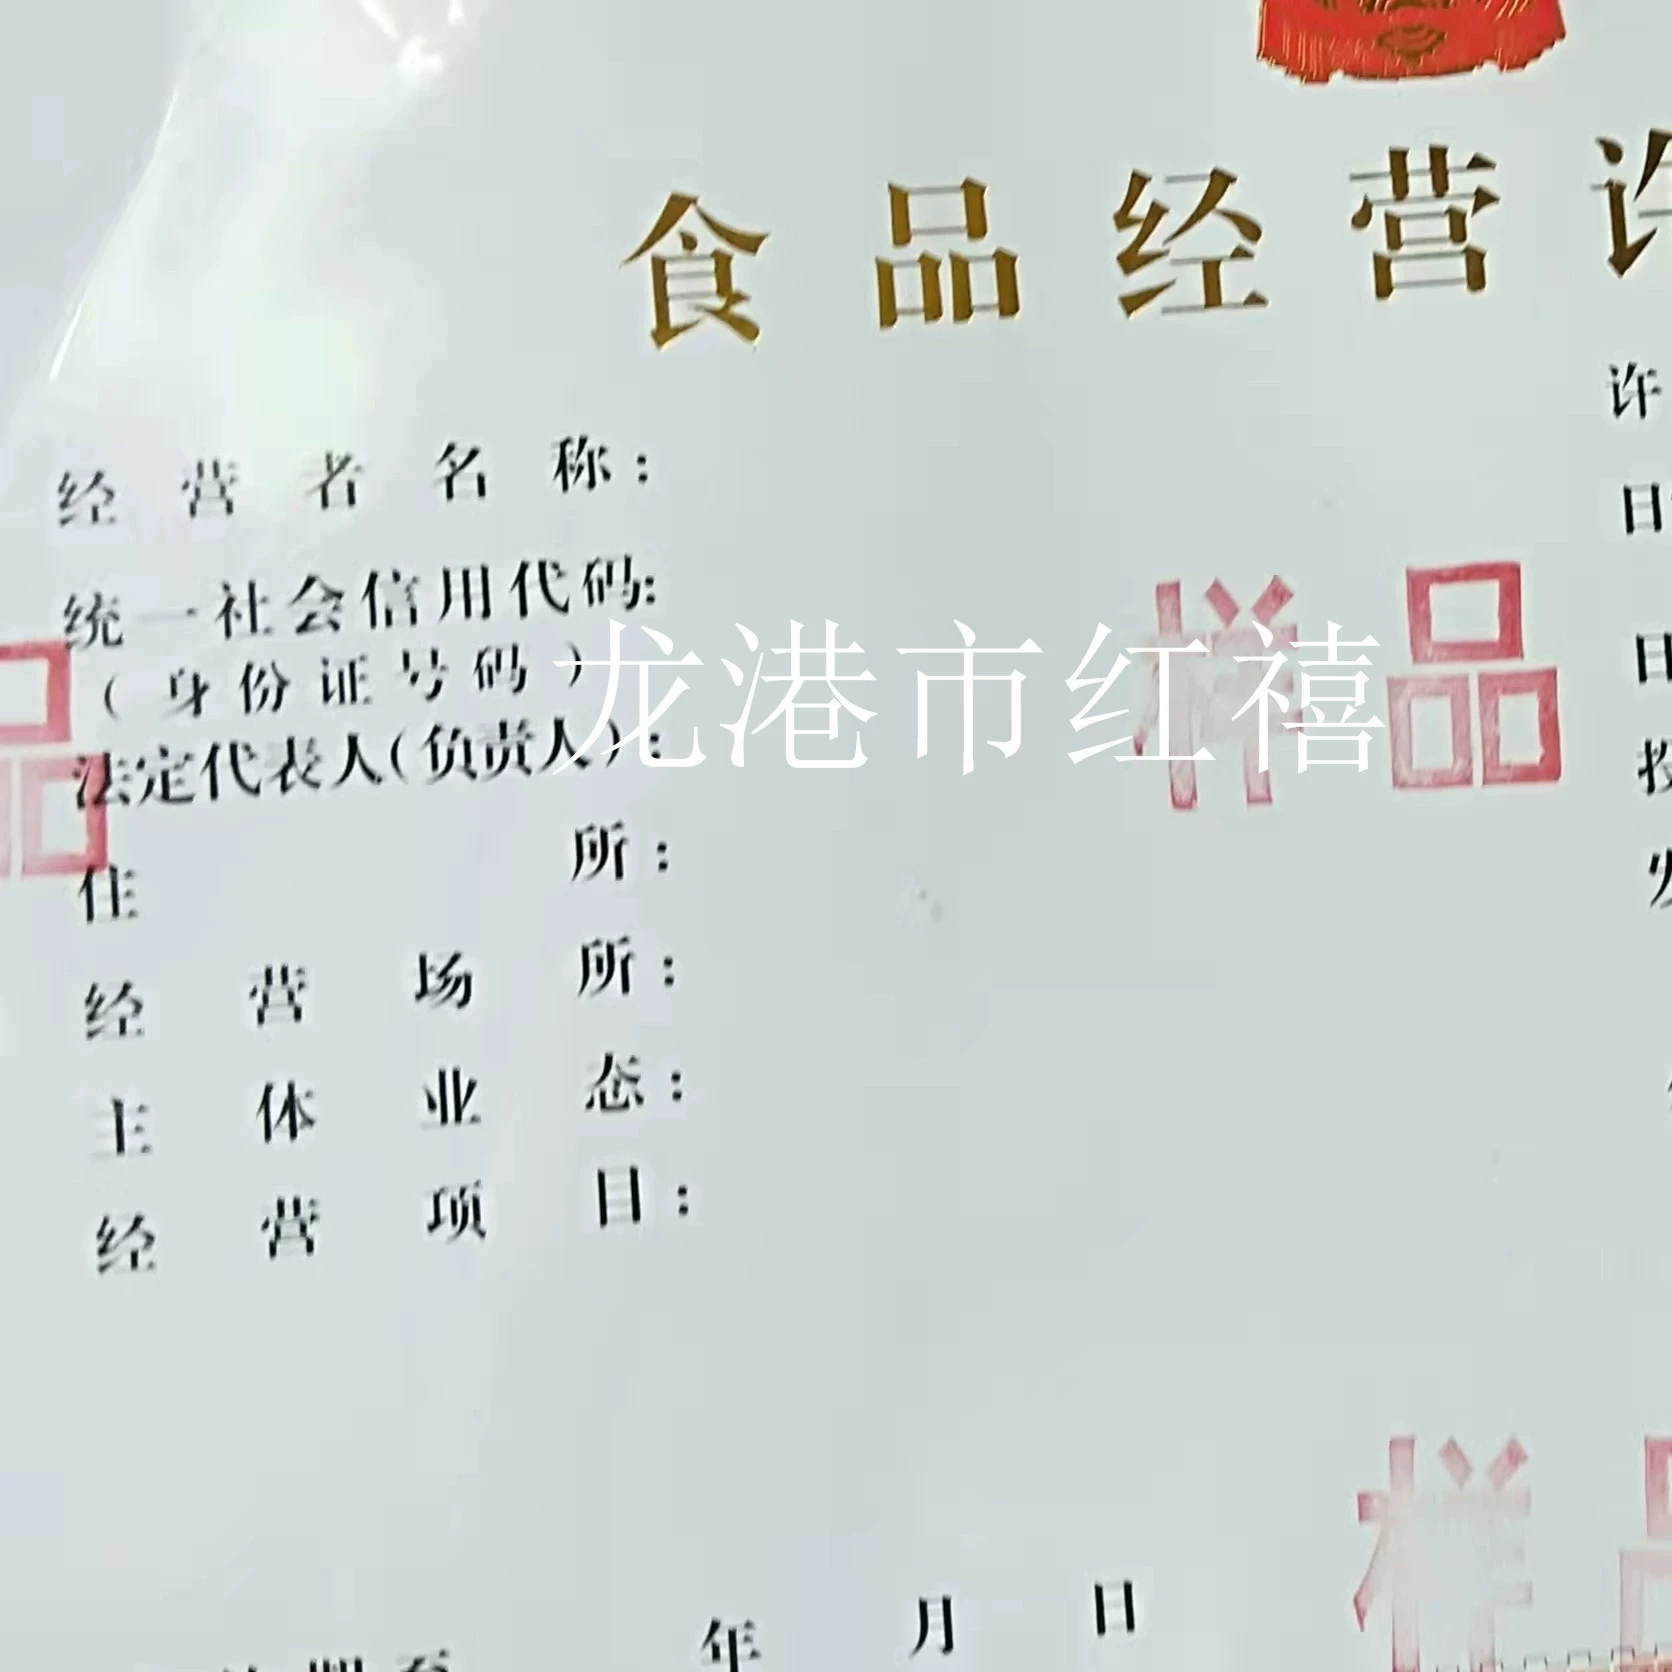 食品经营许
许
经营者名称：
日
统一社会信用代码：
（身份证号码）
日
法定代表人（负责人）：
投
住所：
发
经营场所：
主体业态：
经营项目：
年月日
龙港市红禧
样品
品
样